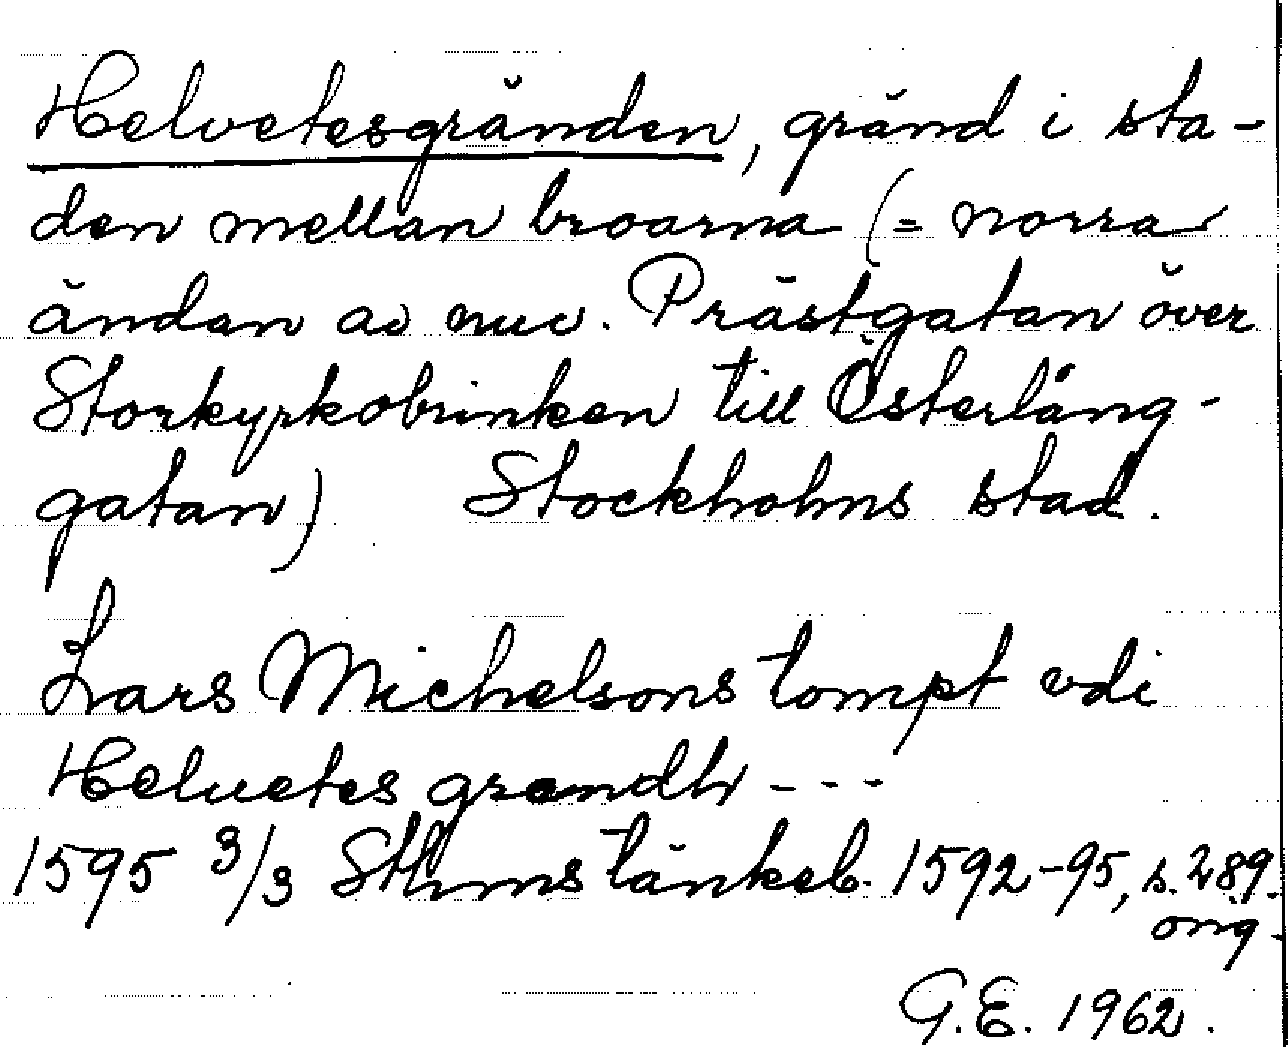 Helvetesgränden, gränd i sta-
den mellan broarna (= norra
ändan av nuv. Prästgatan över
Storkyrkobrinken till Österlång-
gatan) Stockholms stad.
Lars Michelsons tompt vdi
Heluetes grendh ---
1595 3/3 Sthms tänkeb. 1592-95, s. 289.
orig.
G.E. 1962.